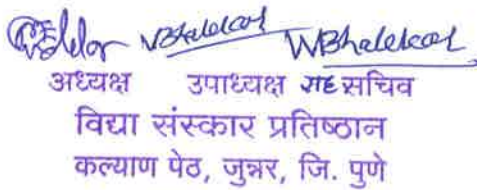 NBhalekar WBhalekar
अध्यक्ष उपाध्यक्ष सह सचिव
विद्या संस्कार प्रतिष्ठान
कल्याण पेठ, जुन्नर, जि. पुणे